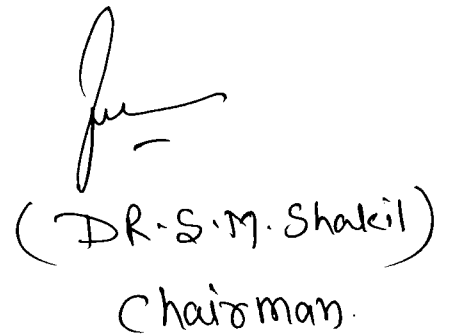 (DR.S.M. Shakil)
Chairman.